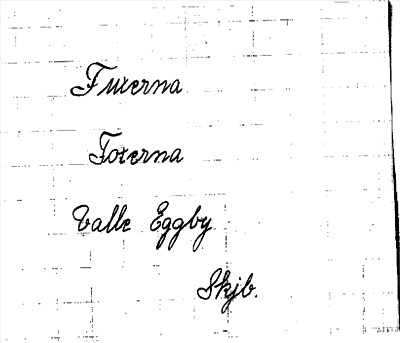 Furerna
Torerna
Valle Eggby
Skjb.